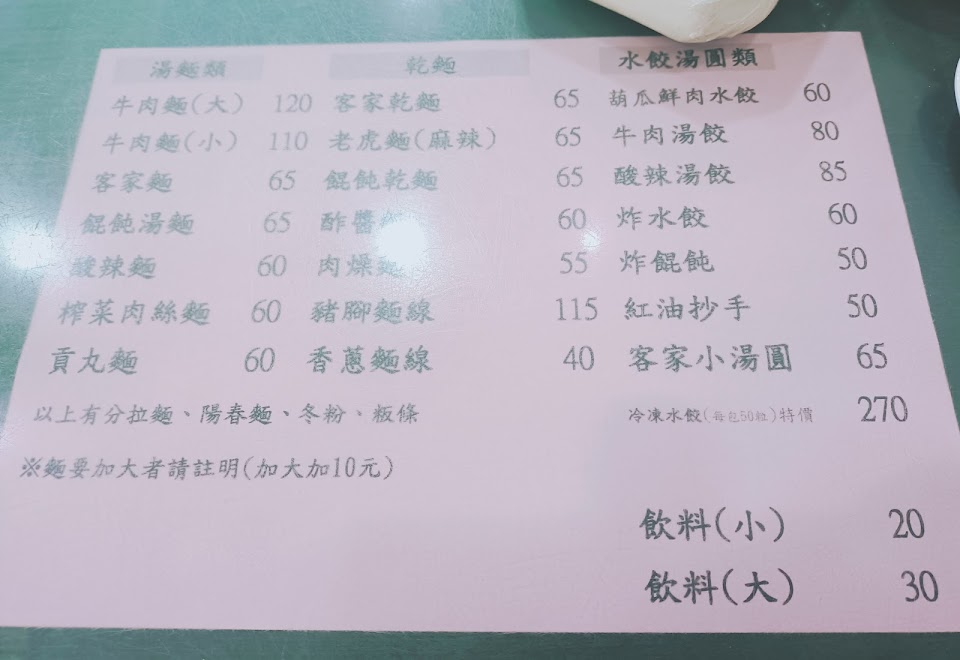 湯麵類 乾麵 水餃湯圓類
牛肉麵(大) 120 客家乾麵 65 葫瓜鮮肉水餃 60
牛肉麵(小) 110 老虎麵(麻辣) 65 牛肉湯餃 80
客家麵 65 餛飩乾麵 65 酸辣湯餃 85
餛飩湯麵 65 酢醬 60 炸水餃 60
酸辣麵 60 肉燥麵 55 炸餛飩 50
榨菜肉絲麵 60 豬腳麵線 115 紅油抄手 50
貢丸麵 60 香蔥麵線 40 客家小湯圓 65
以上有分拉麵、陽春麵、冬粉、粄條 冷凍水餃(每包50粒)特價 270
※麵要加大者請註明(加大加10元)
飲料(小) 20
飲料(大) 30